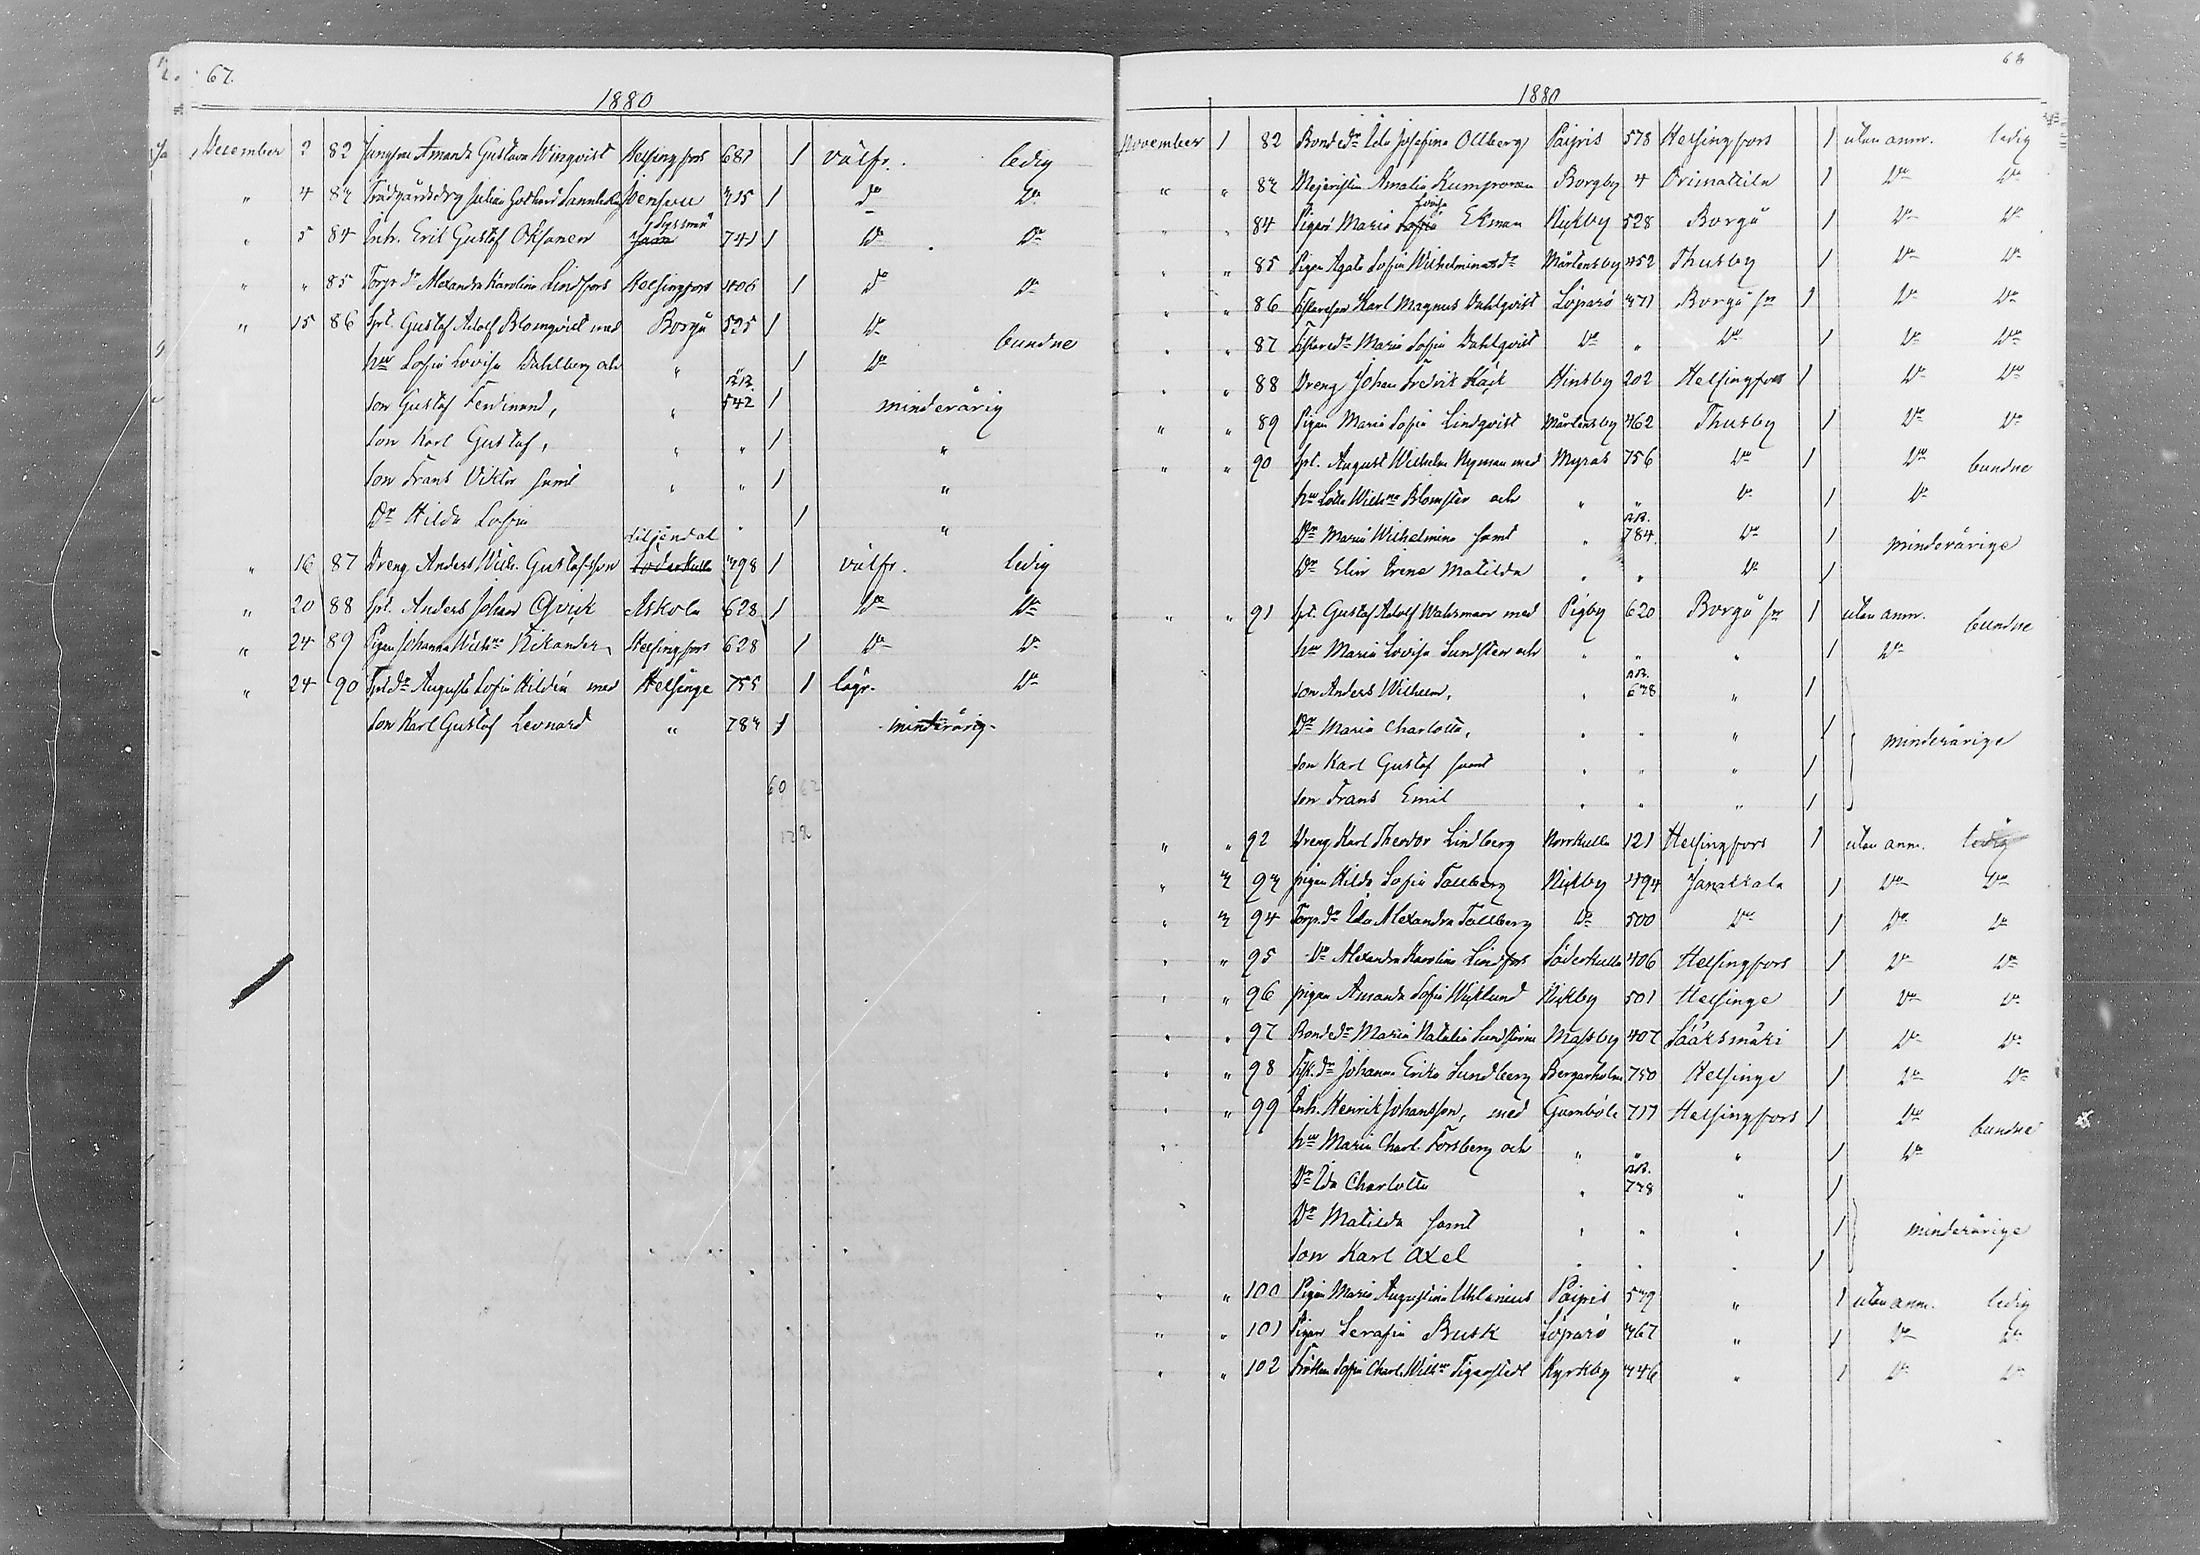 67.
1880
December 2 82 Jungfru Amanda Gustava Winqvist Helsingfors 681 1 välfr. ledig
" 4 83 Trädgårdsdrg Julian Gothard 315 1 do do
" 5 84 Inh. Erik Gustaf Oksanen Sysmä 741 1 Do Do
" " 85 Torp.dr Alexandra Karolina Lindfors Helsingfors 406 1 do Do
" 15 86 Spt. Gustaf Adolf Blomqvist med Borgå 525 1 Do bundne
hu Sofia Lovisa Dahlberg och " 1 Do
son Gustaf Ferdinand, " B.B. 542 1 minderårig
son Karl Gustaf, " " 1 "
son Frans Viktor samt " " 1 "
Dr Hilda Sofia " 1 "
" 16 87 Dreng Anders Wilh. Gustafsson Liljendal Söderkulla 398 1 välfr. ledig
" 20 88 spt. Anders Johan Qvick Askola 628 1 Do Do
" 24 89 Pigan Johanna Wilhna Nikander Helsingfors 628 1 Do Do
" 24 90 Spt.dr Augusta Sofia Hildén med Helsinge 755 1 lägr. Do
son Karl Gustaf Leonard " 783 1 minderårig
60 62
122
68
1880
November 1 82 Bondedr Ida Josefina Ollberg Paipis 578 Helsingfors 1 utan anm. ledig
" " 83 Mejeristin Amalia Kumpronen Borgby 4 Orimattila 1 Do Do
" " 84 Pigan Maria Sofia Lovisa Ekman Nickby 528 Borgå 1 Do Do
" " 85 Pigan Agata Sofia Wilhelminasdr Mårtensby 452 Thusby 1 Do Do
" " 86 Fiskareson Karl Magnus Dahlqvist Löparö 371 Borgå sn 1 Do Do
" " 87 Fiskaredr Maria Sofia Dahlqvist Do " Do 1 Do Do
" " 88 Dreng Johan Fredrik Käck Hindsby 202 Helsingfors 1 Do Do
" " 89 Pigan Maria Sofia Lindqvist Mårtensby 462 Thusby 1 Do Do
" " 90 spt. August Wilhelm Nyman med Myras 756 Do 1 Do bundne
hu Lotta Wilhna Blomster och " " Do 1 Do
Dr Maria Wilhelmina samt " B.B. 784. Do 1 minderårige
Dr Elin Irene Matilda " " Do 1
" " 91 spt. Gustaf Adolf Wahrman med Pigby 620 Borgå sn 1 utan anm. bundne
hu Maria Lovisa Sundsten och " " " 1 Do
son Anders Wilhelm, " B.B. 638 " 1
Dr Maria Charlotta, " " " 1 minderårige
son Karl Gustaf samt " " " 1
son Frans Emil " " " 1
" " 92 Dreng Karl Theodor Lindberg Norrkulla 121 Helsingfors 1 utan anm. ledig
" 3 93 pigan Hilda Sofia Tallberg Nickby 494 Janakkala 1 Do Do
" 3 94 Torp.dr Ida Alexandra Tallberg Do 500 Do 1 Do Do
" " 95 Do Alexandra Karolina Lindfors Söderkulla 406 Helsingfors 1 Do Do
" " 96 pigan Amanda Sofia Wicklund Nickby 501 Helsinge 1 Do Do
" " 97 Bondedr Maria Natalia Sundström Massby 407 Sääksmäki 1 Do Do
" " 98 Fisk.dr Johanna Erika Sundberg Bergarholm 750 Helsinge 1 Do Do
" " 99 Inh. Henrik Johansson, med Gumböle 717 Helsingfors 1 Do bundne
" hu Maria Charl. Forsberg och " " " 1 Do
Dr Ida Charlotta " B.B. 738 " 1
Dr Matilda samt " " " 1 minderårige
son Karl Axel " " " 1
" " 100 Pigan Maria Augustina Uhlenius Paipis 579 " 1 utan anm. ledig
" " 101 Pigan Serafia Busk Löparö 367 " 1 Do Do
" " 102 Fröken Sofia Charl. Wilhna Tigerstedt Kyrkby 346 " 1 Do Do